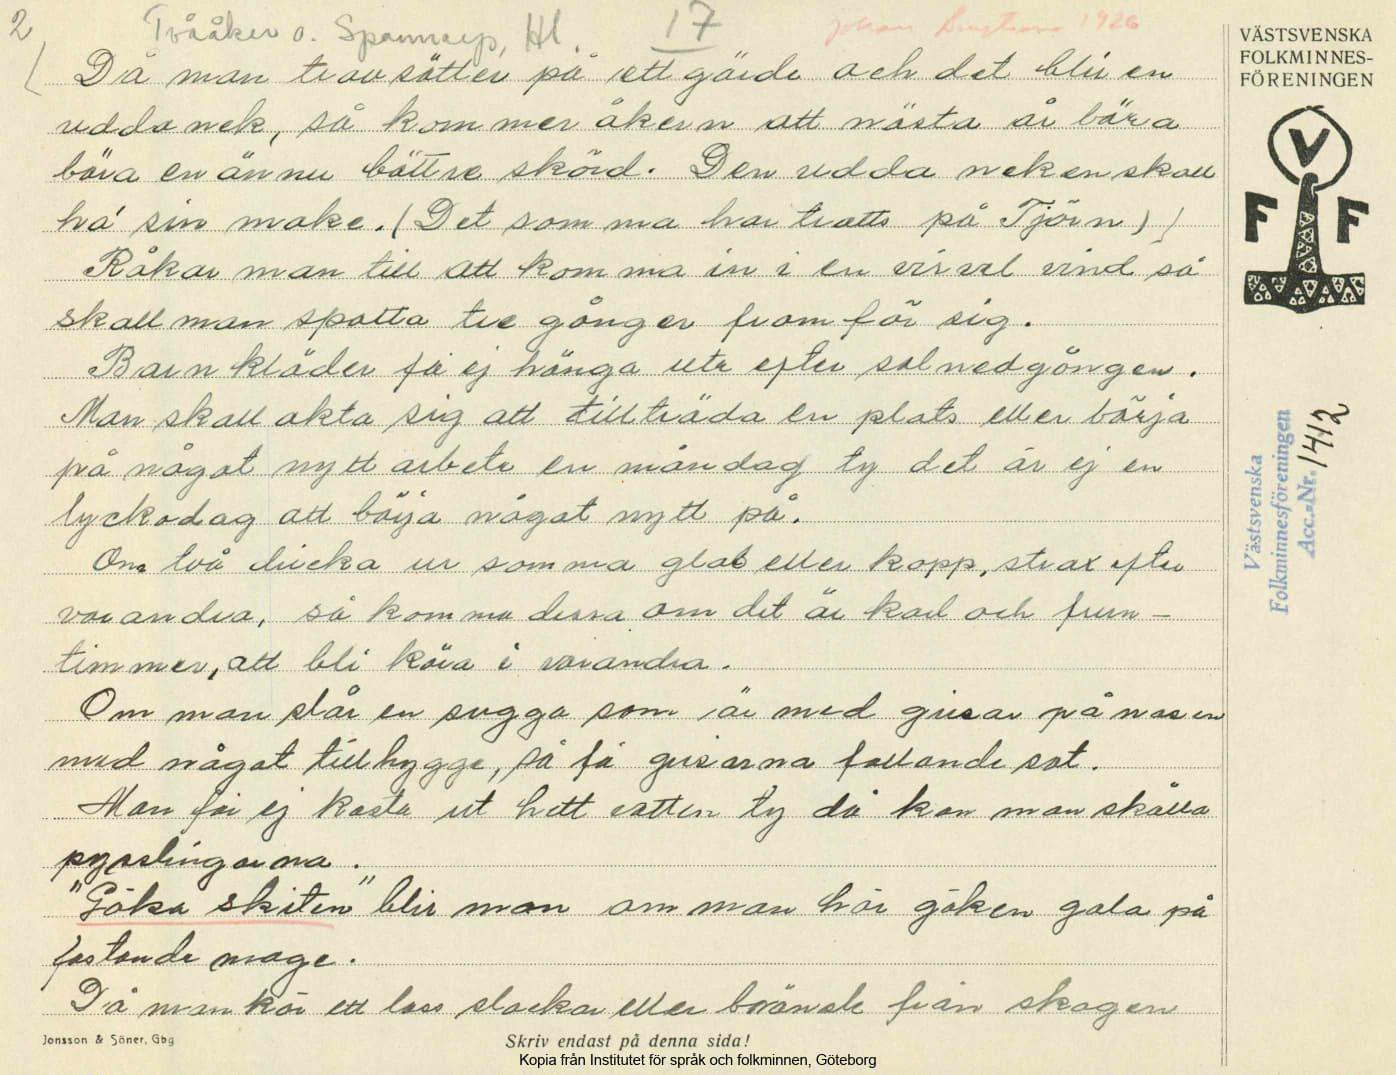 2
Tvååker o. Spannarp, Hl.
17
Johan 1926
Då man travsätter på ett gärde och det blir en
udda nek, så kommer åkern att nästa år bära
bära en ännu bättre skörd. Den udda neken skall
ha sin make. (Det somma har tratts på Tjörn)
Råkar man till att komma in i en virvel vind så
skall man spotta tre gånger fram för sig.
Barnkläder få ej hänga ute efter solnedgången.
Man skall akta sig att tillträda en plats eller börja
på något nytt arbete en måndag ty det är ej en
lyckodag att börja något nytt på.
Om två dricka ur samma glas eller kopp, strax efter
varandra, så komma dessa om det är karl och frun-
timmer, att bli kära i varandra.
Om man slår en sugga som är med grisar på nasen
med något tillhygge, så få grisarna fallande sot.
Man får ej kasta ut hett vatten ty då kan man skålla
pysslingarna.
"Göka skiten" blir man om man hör göken gala på
fastande mage.
Då man kör ett lass stockar eller bränsle från skogen
VÄSTSVENSKA
FOLKMINNES-
FÖRENINGEN
V
F F
Västsvenska
Folkminnesföreningen
Acc.-Nr. 1412
Jonsson & Söner, Gbg
Skriv endast på denna sida!
Kopia från Institutet för språk och folkminnen, Göteborg